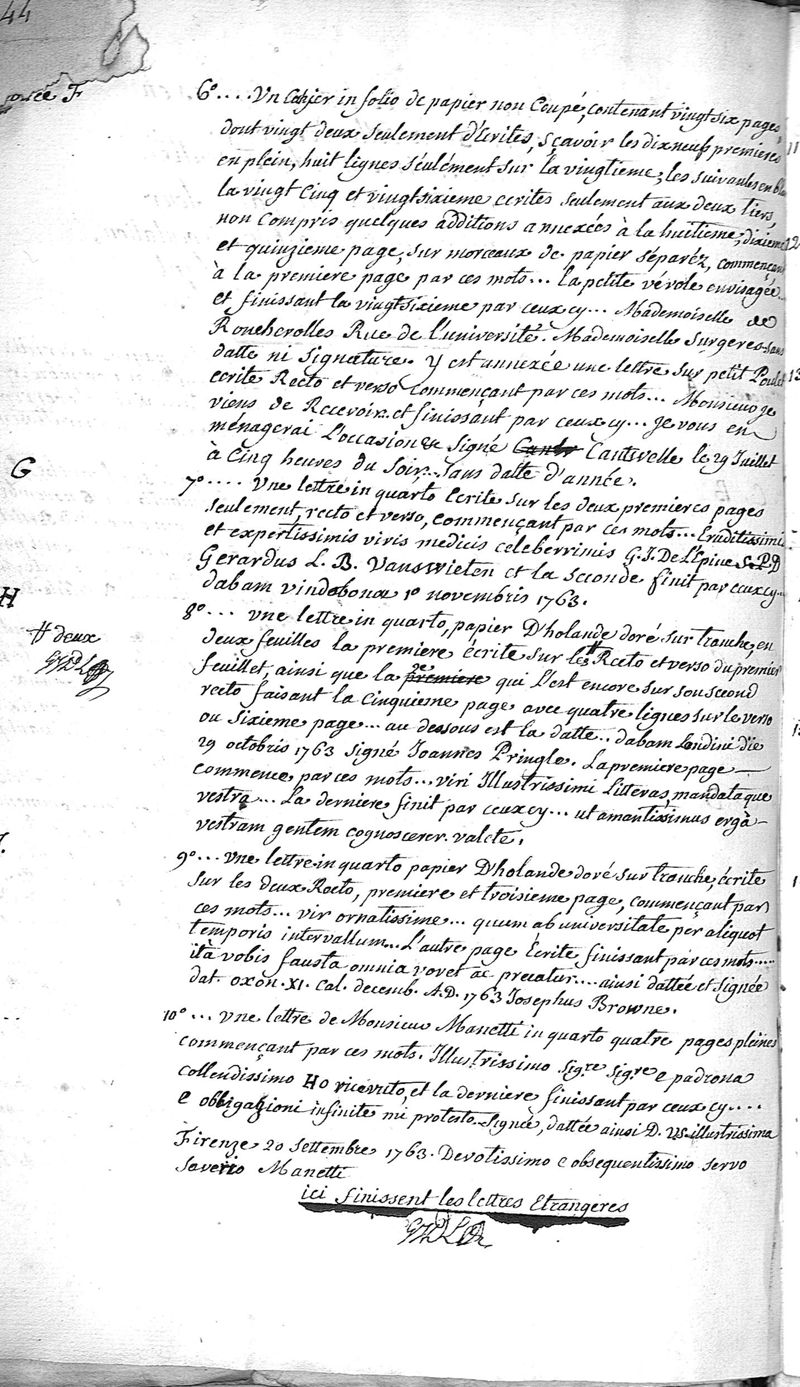 44
F
6º.... Un Cahier in folio de papier non Coupé, contenant vingt six pages,
dont vingt deux seulement d'Ecrites, sçavoir les dixneuf premieres
en plein, huit lignes seulement sur la vingtieme, les suivantes en
la vingt Cinq et vingtsixieme ecrites seulement aux deux tiers,
non Compris quelques additions annexées à la huitieme, dixieme
et quinzieme page, sur morceaux de papier séparéz, commençant
à la premiere page par ces mots... la petite vérole envisagée...
et finissant la vingtsixieme par ceux cy... Mademoiselle de
Roncherolles Rue de l'université. Mademoiselle Surgeres sans
datte ni signature. y est annexée une lettre sur petit Poulet
ecrite Recto et verso commençant par ces mots... Monsieur je
viens de Recevoir.. et finissant par ceux cy... je vous en
ménagerai l'occasion & signé Cantwelle le 29 Juillet
à Cinq heures du Soir... sans datte d'année.
G
7º.... Une lettre in quarto Ecrite sur les deux premieres pages
seulement, recto et verso, commençant par ces mots... Eruditissimis
et expertissimis viris medicis céleberrimis G. J. De L'Epine S. P. D
Gerardus L. B. Vanswieten et la seconde finit par ceux cy...
dabam vindobonæ 1º novembris 1763.
H
8º... Une lettre in quarto, papier D'holande doré sur tranche, en
deux feuilles la premiere écrite sur les # Recto et verso du premier
# deux
feuillet, ainsi que la premiere 2e qui L'est encore sur son second
recto faisant la Cinquieme page avec quatre lignes sur le verso
ou sixieme page... au dessous est la datte... dabam Londini die
29 octobris 1763 signé Joannes Pringle. La premiere page
commence par ces mots... viri Illustrissimi Litteras, mandataque
vestra... La derniere finit par ceux cy... ut amantissimus ergà
vestram gentem cognoscerer. valete.
9º... Une lettre in quarto papier D'holande doré sur tranche, écrite
sur les deux Recto, premiere et troisieme page, commençant par
ces mots... vir ornatissime... quum ab universitate per aliquot
temporis intervallum... L'autre page Ecrite finissant par ces mots.....
ità vobis fausta omnia vovet ac precatur.... ainsi dattée et signée
dat. oxon. XI. Cal. decemb. A.D. 1763 Josephus Browne.
10º... Une lettre de Monsieur Manetti in quarto quatre pages pleines
commençant par ces mots. Illustrissimo sigre sigre e padrona
collendissimo Ho ricevuto, et la derniere finissant par ceux cy....
e obbligazioni infinite mi protesto. Signée, dattée ainsi D. VS. illustrissima
Firenze 20 Settembre 1763. Devotissimo e obsequentissimo servo
Saverio Manetti
ici finissent les lettres Etrangeres